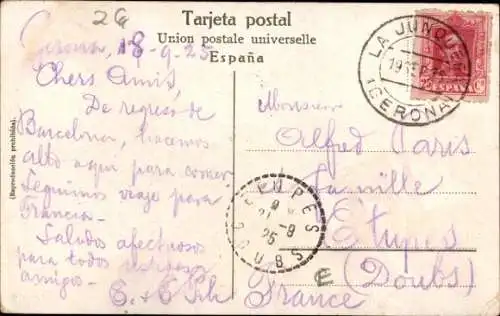 26
Tarjeta postal
Union postale universelle
España
Gerona 18-9-25
Chers Amis,
De regreso de
Barcelona, hacemos
alto aquí para comer
Seguimos viaje para
Francia.
Saludos afectuosos
para todos
amigos.
(Reproducción prohibida).
LA JUNQUERA
19 SEP
(GERONA)
Monsieur
Alfred Paris
Famille
Etupes
(Doubs)
France
ETUPES
21-9
25
DOUBS
€